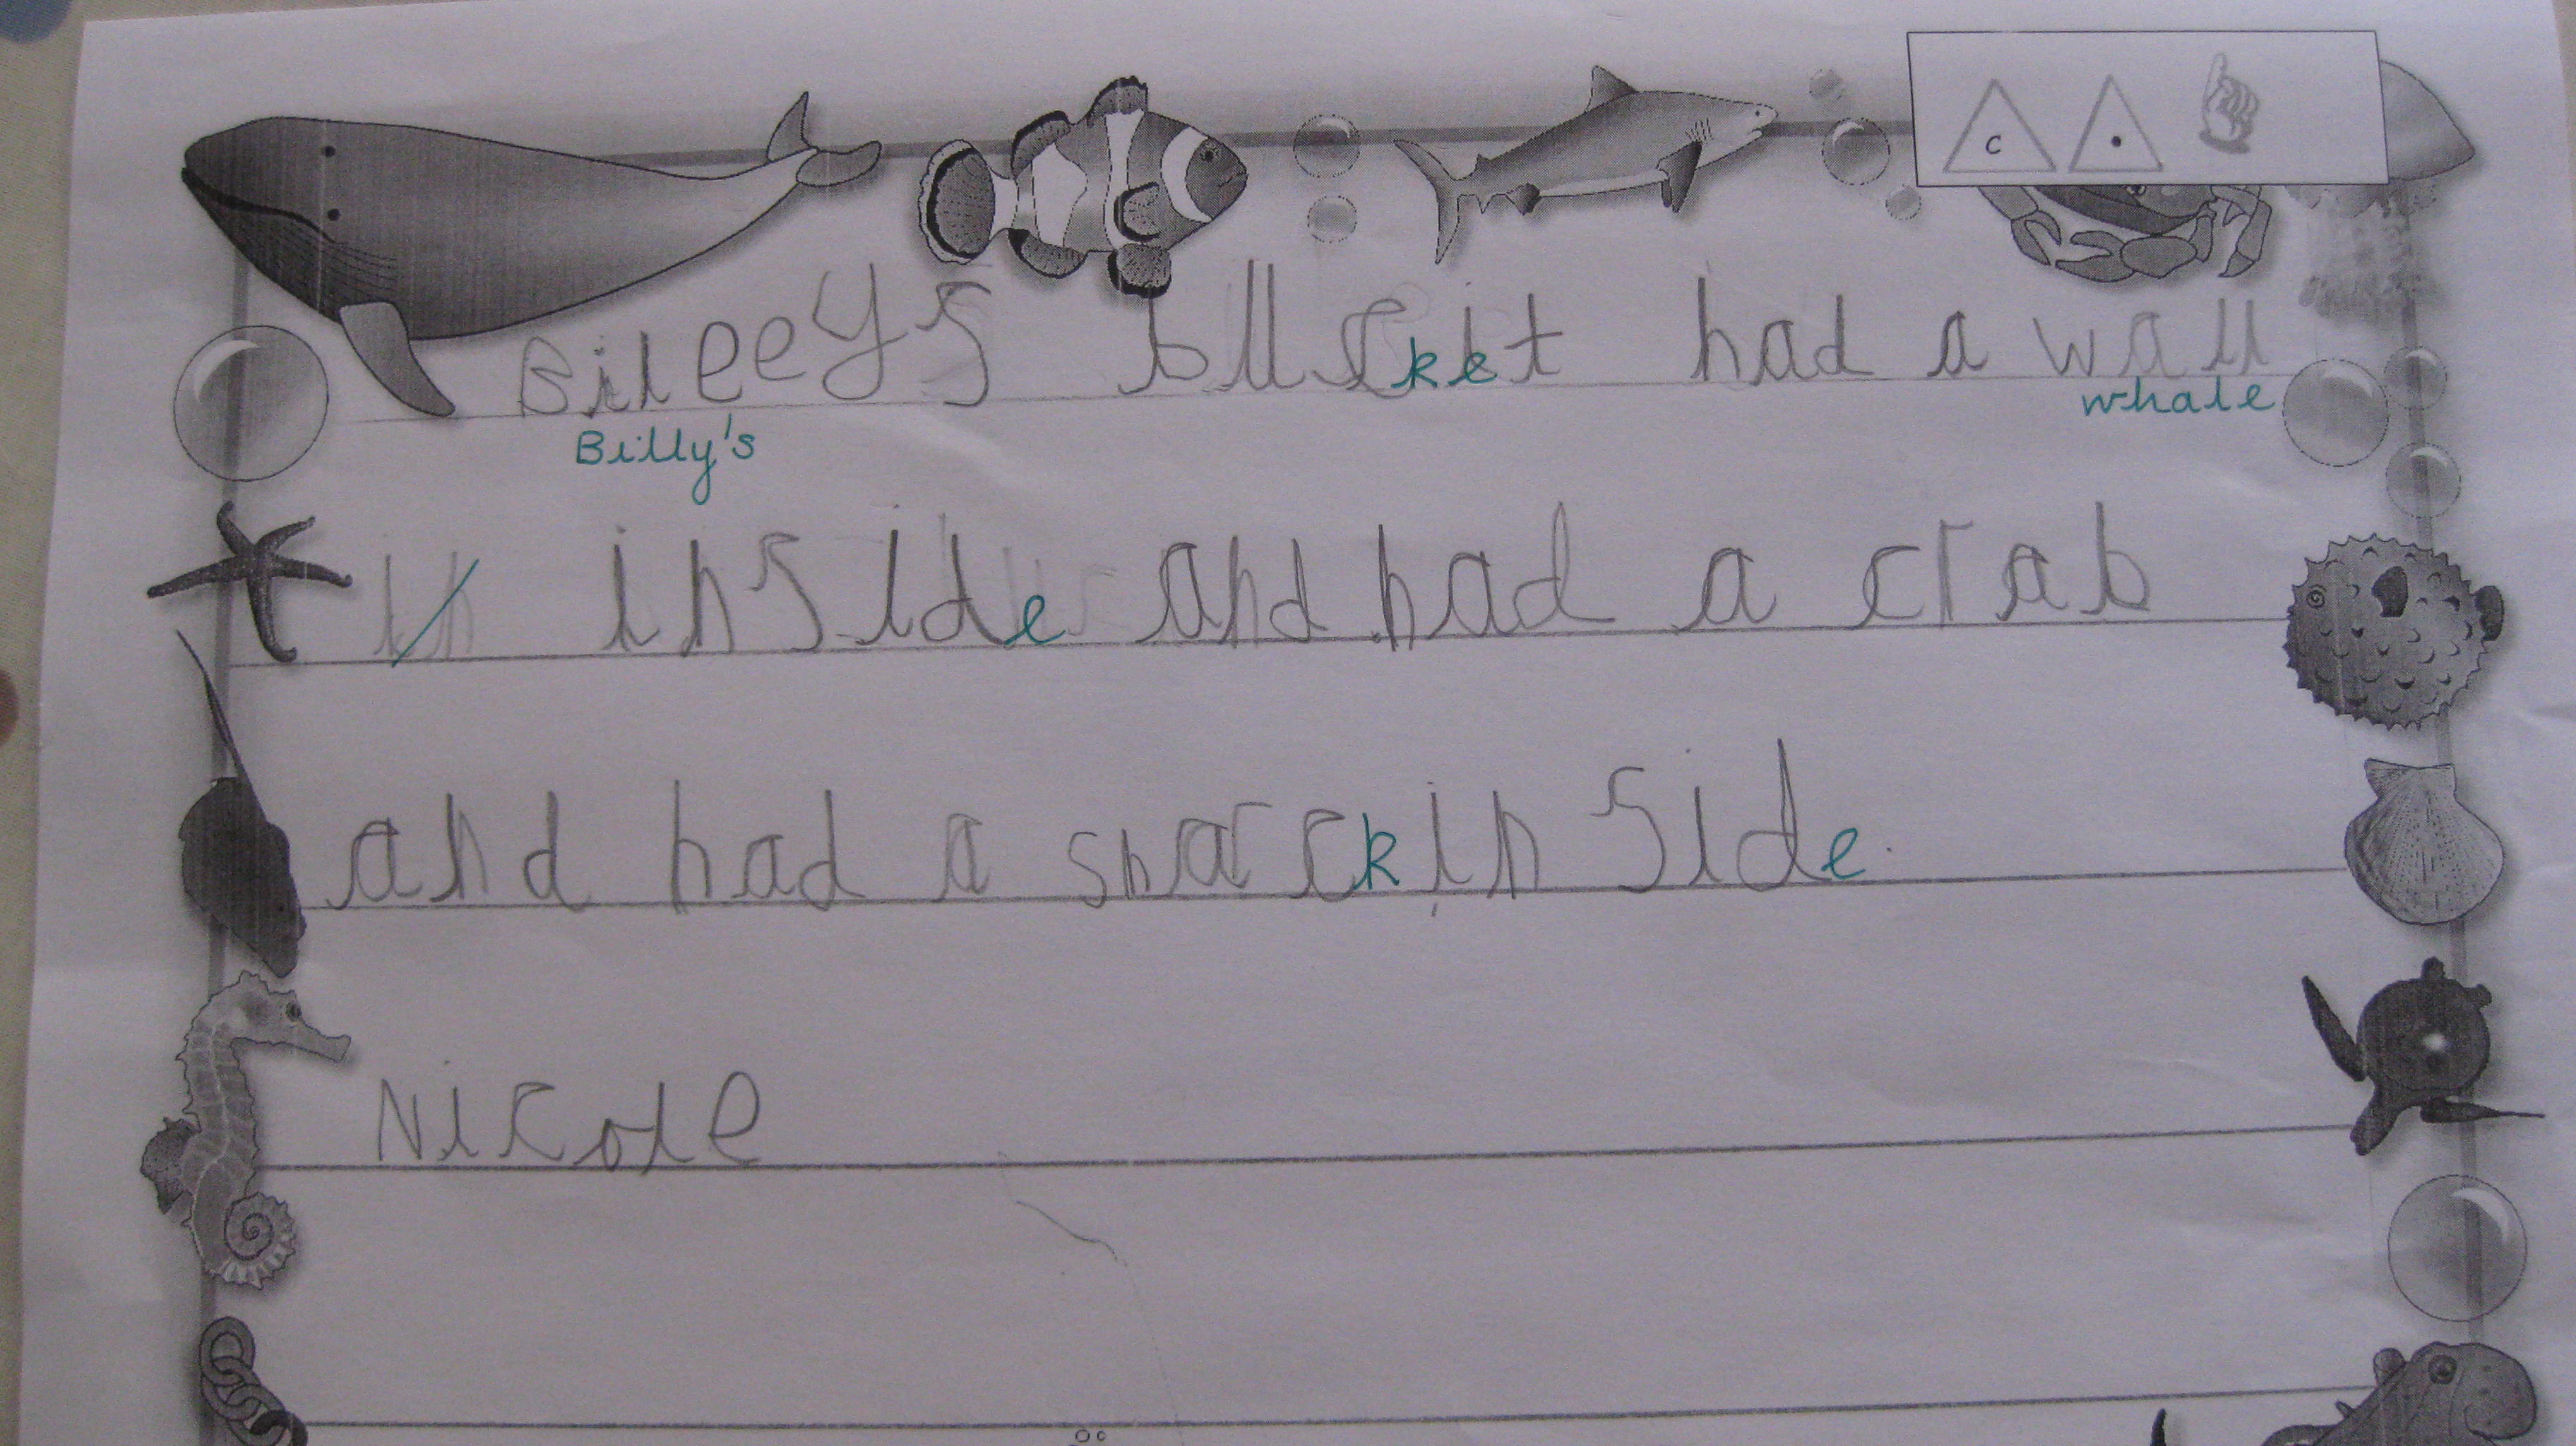 c
Bileeys bucket had a wall
Billy's whale
in inside and had a crab
and had a sharck inside.
Nicole